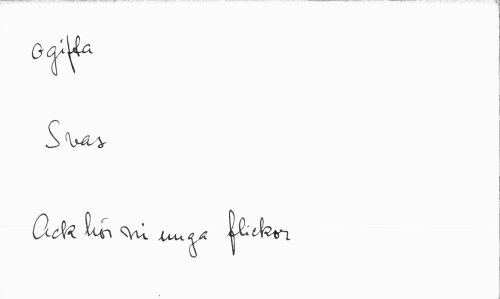 ogifta
Svas
Ack hör ni unga flickor